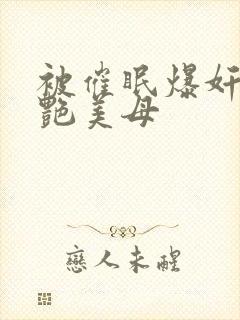 被催眠爆奸
艷美母
戀人未醒